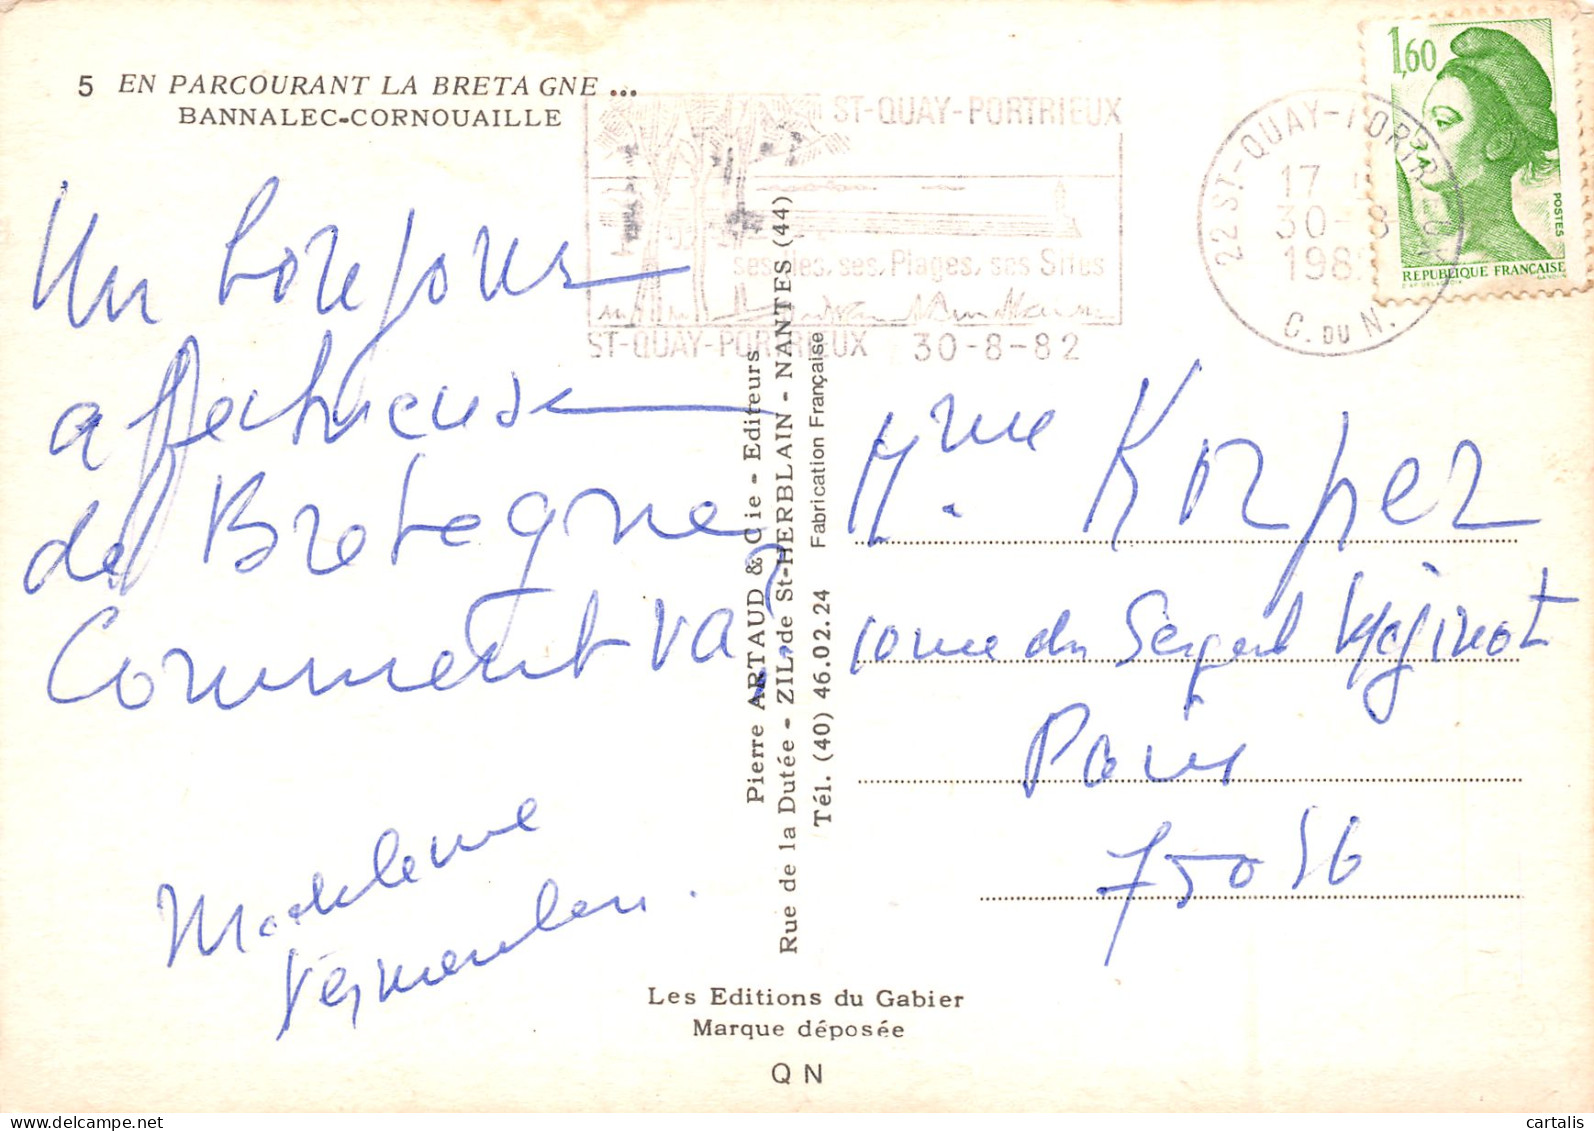 5 EN PARCOURANT LA BRETAGNE ...
BANNALEC-CORNOUAILLE
ST-QUAY-PORTRIEUX
ses Iles, ses Plages, ses Sites
ST-QUAY-PORTRIEUX 30-8-82
22 ST-QUAY-PORTRIEUX
17
30-8
198
C. DU N.
1,60
POSTES
REPUBLIQUE FRANÇAISE
Un bonjour
affectueux
de Bretagne
Comment va ?
Madeleine
Vermeulen.
Pierre ARTAUD & Cie - Editeurs
Rue de la Dutée - ZIL de St-HERBLAIN - NANTES (44)
Tél. (40) 46.02.24 Fabrication Française
Mme Korper
rue du Sergent Maginot
Paris
75016
Les Editions du Gabier
Marque déposée
QN
cartalis
www.delcampe.net